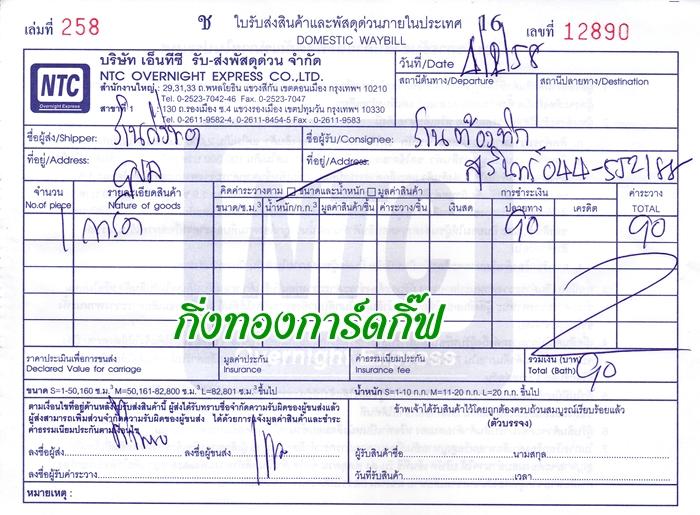 เล่มที่ 258 ช ใบรับส่งสินค้าและพัสดุด่วนภายในประเทศ 16 เลขที่ 12890
DOMESTIC WAYBILL
NTC
Overnight Express
บริษัท เอ็นทีซี รับ-ส่งพัสดุด่วน จำกัด
NTC OVERNIGHT EXPRESS CO.,LTD.
สำนักงานใหญ่ : 29,31,33 ถ.พหลโยธิน แขวงสีกัน เขตดอนเมือง กรุงเทพฯ 10210
Tel. 0-2523-7042-46 Fax. 0-2523-7047
สาขาที่ 1 : 130 ถ.รองเมือง ซ.4 แขวงรองเมือง เขตปทุมวัน กรุงเทพฯ 10330
Tel. 0-2611-9582-4, 0-2611-8454-5 Fax. 0-2611-9583
วันที่/Date
สถานีต้นทาง/Departure สถานีปลายทาง/Destination
ชื่อผู้ส่ง/Shipper: ชื่อผู้รับ/Consignee:
ที่อยู่/Address: ที่อยู่/Address: สุรินทร์ 044-552188
จำนวน รายละเอียดสินค้า คิดค่าระวางตาม ขนาดและน้ำหนัก มูลค่าสินค้า การชำระเงิน ค่าระวาง
No.of piece Nature of goods ขนาด/ซ.ม.³ น้ำหนัก/ก.ก.³ มูลค่าสินค้า/ชิ้น ค่าระวาง/ชิ้น เงินสด ปลายทาง เครดิต TOTAL
1 การ์ด 90 90
NTC
กิ่งทองการ์ดกิ๊ฟ
Overnight Express
ราคาประเมินเพื่อการขนส่ง มูลค่าประกัน ค่าธรรมเนียมประกัน รวมเงิน (บาท)
Declared Value for carriage Insurance Insurance fee Total (Bath) 90
ขนาด S=1-50,160 ซ.ม.³ M=50,161-82,800 ซ.ม.³ L=82,801 ซ.ม.³ ขึ้นไป น้ำหนัก S=1-10 ก.ก. M=11-20 ก.ก. L=20 ก.ก. ขึ้นไป
ตามเงื่อนไขที่อยู่ด้านหลังใบรับส่งสินค้านี้ ผู้ส่งได้รับทราบข้อจำกัดความรับผิดของผู้ขนส่งแล้ว
ผู้ส่งสามารถเพิ่มส่วนจำกัดความรับผิดของผู้ขนส่ง ได้ด้วยการแจ้งมูลค่าสินค้าและชำระ
ค่าธรรมเนียมประกันตามเงื่อนไข
ข้าพเจ้าได้รับสินค้าไว้โดยถูกต้องครบถ้วนสมบูรณ์เรียบร้อยแล้ว
(ตัวบรรจง)
ลงชื่อผู้ส่ง ลงชื่อผู้ขนส่ง ผู้รับสินค้าชื่อ นามสกุล
ลงชื่อผู้รับค่าระวาง วันที่รับสินค้า เวลา
หมายเหตุ :